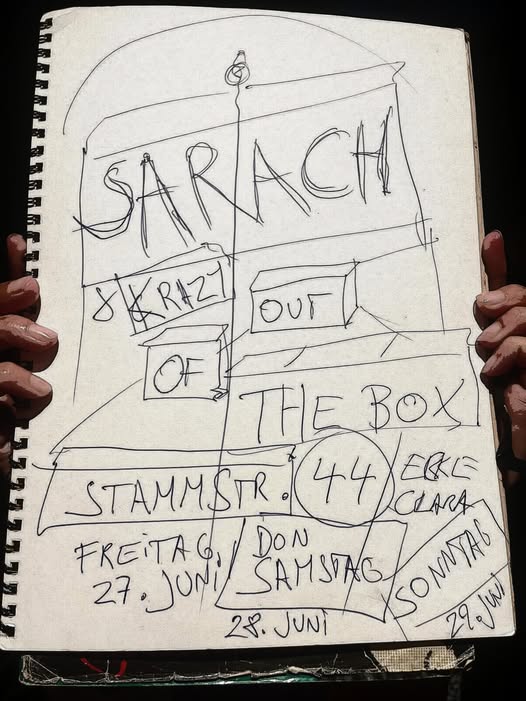 SARACH
& KRAZY
OUT
OF
THE BOX
STAMMSTR. 44
ECKE
CLARA
FREITAG
27. JUNI
DON
SAMSTAG
28. JUNI
SONNTAG
29. JUNI